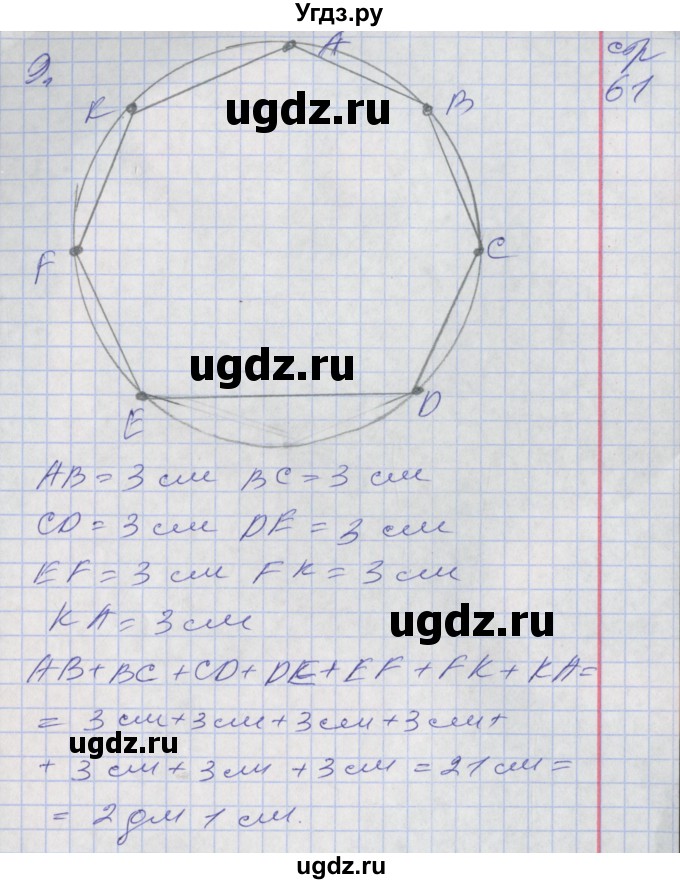 Угдз.ру
9.
стр
61
A
K
B
ugdz.ru
F
C
ugdz.ru
E
D
AB = 3 см BC = 3 см
CD = 3 см DE = 3 см
EF = 3 см FK = 3 см
KA = 3 см
ugdz.ru
AB + BC + CD + DE + EF + FK + KA =
= 3 см + 3 см + 3 см + 3 см +
ugdz.ru
+ 3 см + 3 см + 3 см = 21 см =
= 2 дм 1 см.
ugdz.ru